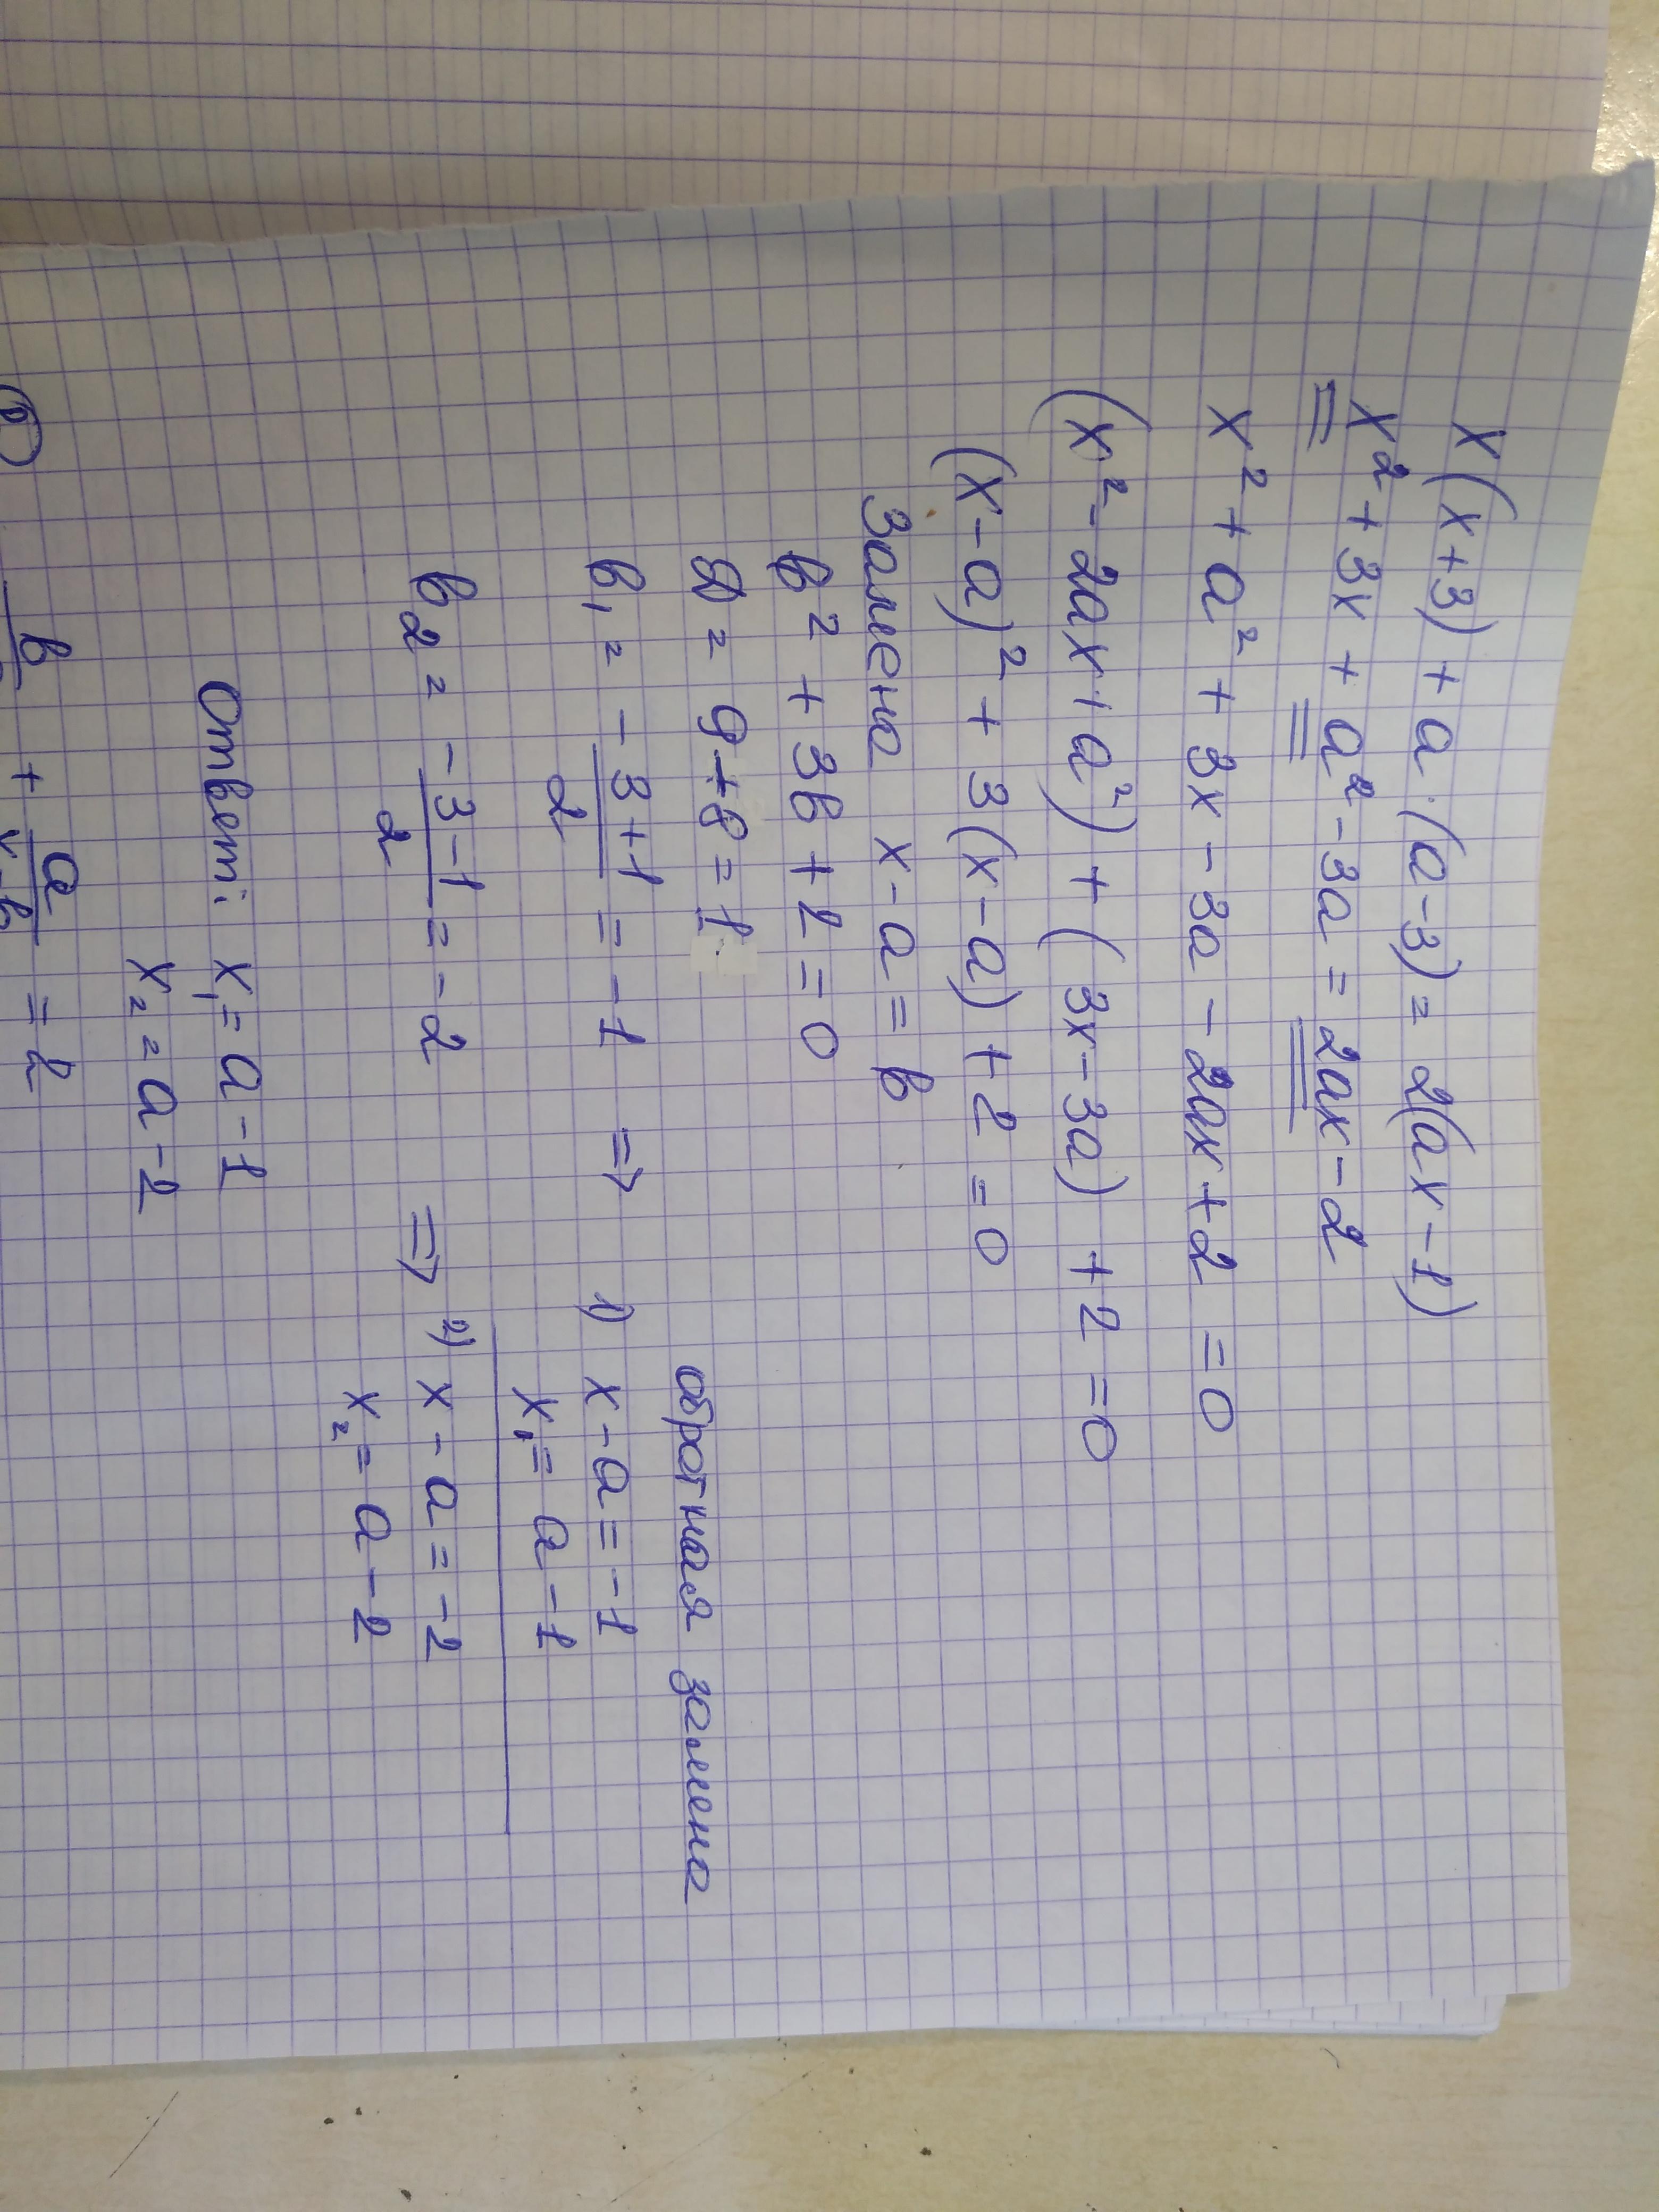 x(x+3) + a·(a-3) = 2(ax-1)
x² + 3x + a² - 3a = 2ax - 2
x² + a² + 3x - 3a - 2ax + 2 = 0
(x² - 2ax + a²) + (3x - 3a) + 2 = 0
(x - a)² + 3(x - a) + 2 = 0
Замена x - a = b
b² + 3b + 2 = 0
D = 9 - 8 = 1
обратная замена
b₁ = (-3+1)/2 = -1 ⇒ 1) x - a = -1
x₁ = a - 1
b₂ = (-3-1)/2 = -2 ⇒ 2) x - a = -2
x₂ = a - 2
Ответ: x₁ = a - 1
x₂ = a - 2
② b + a/(x-b) = 2